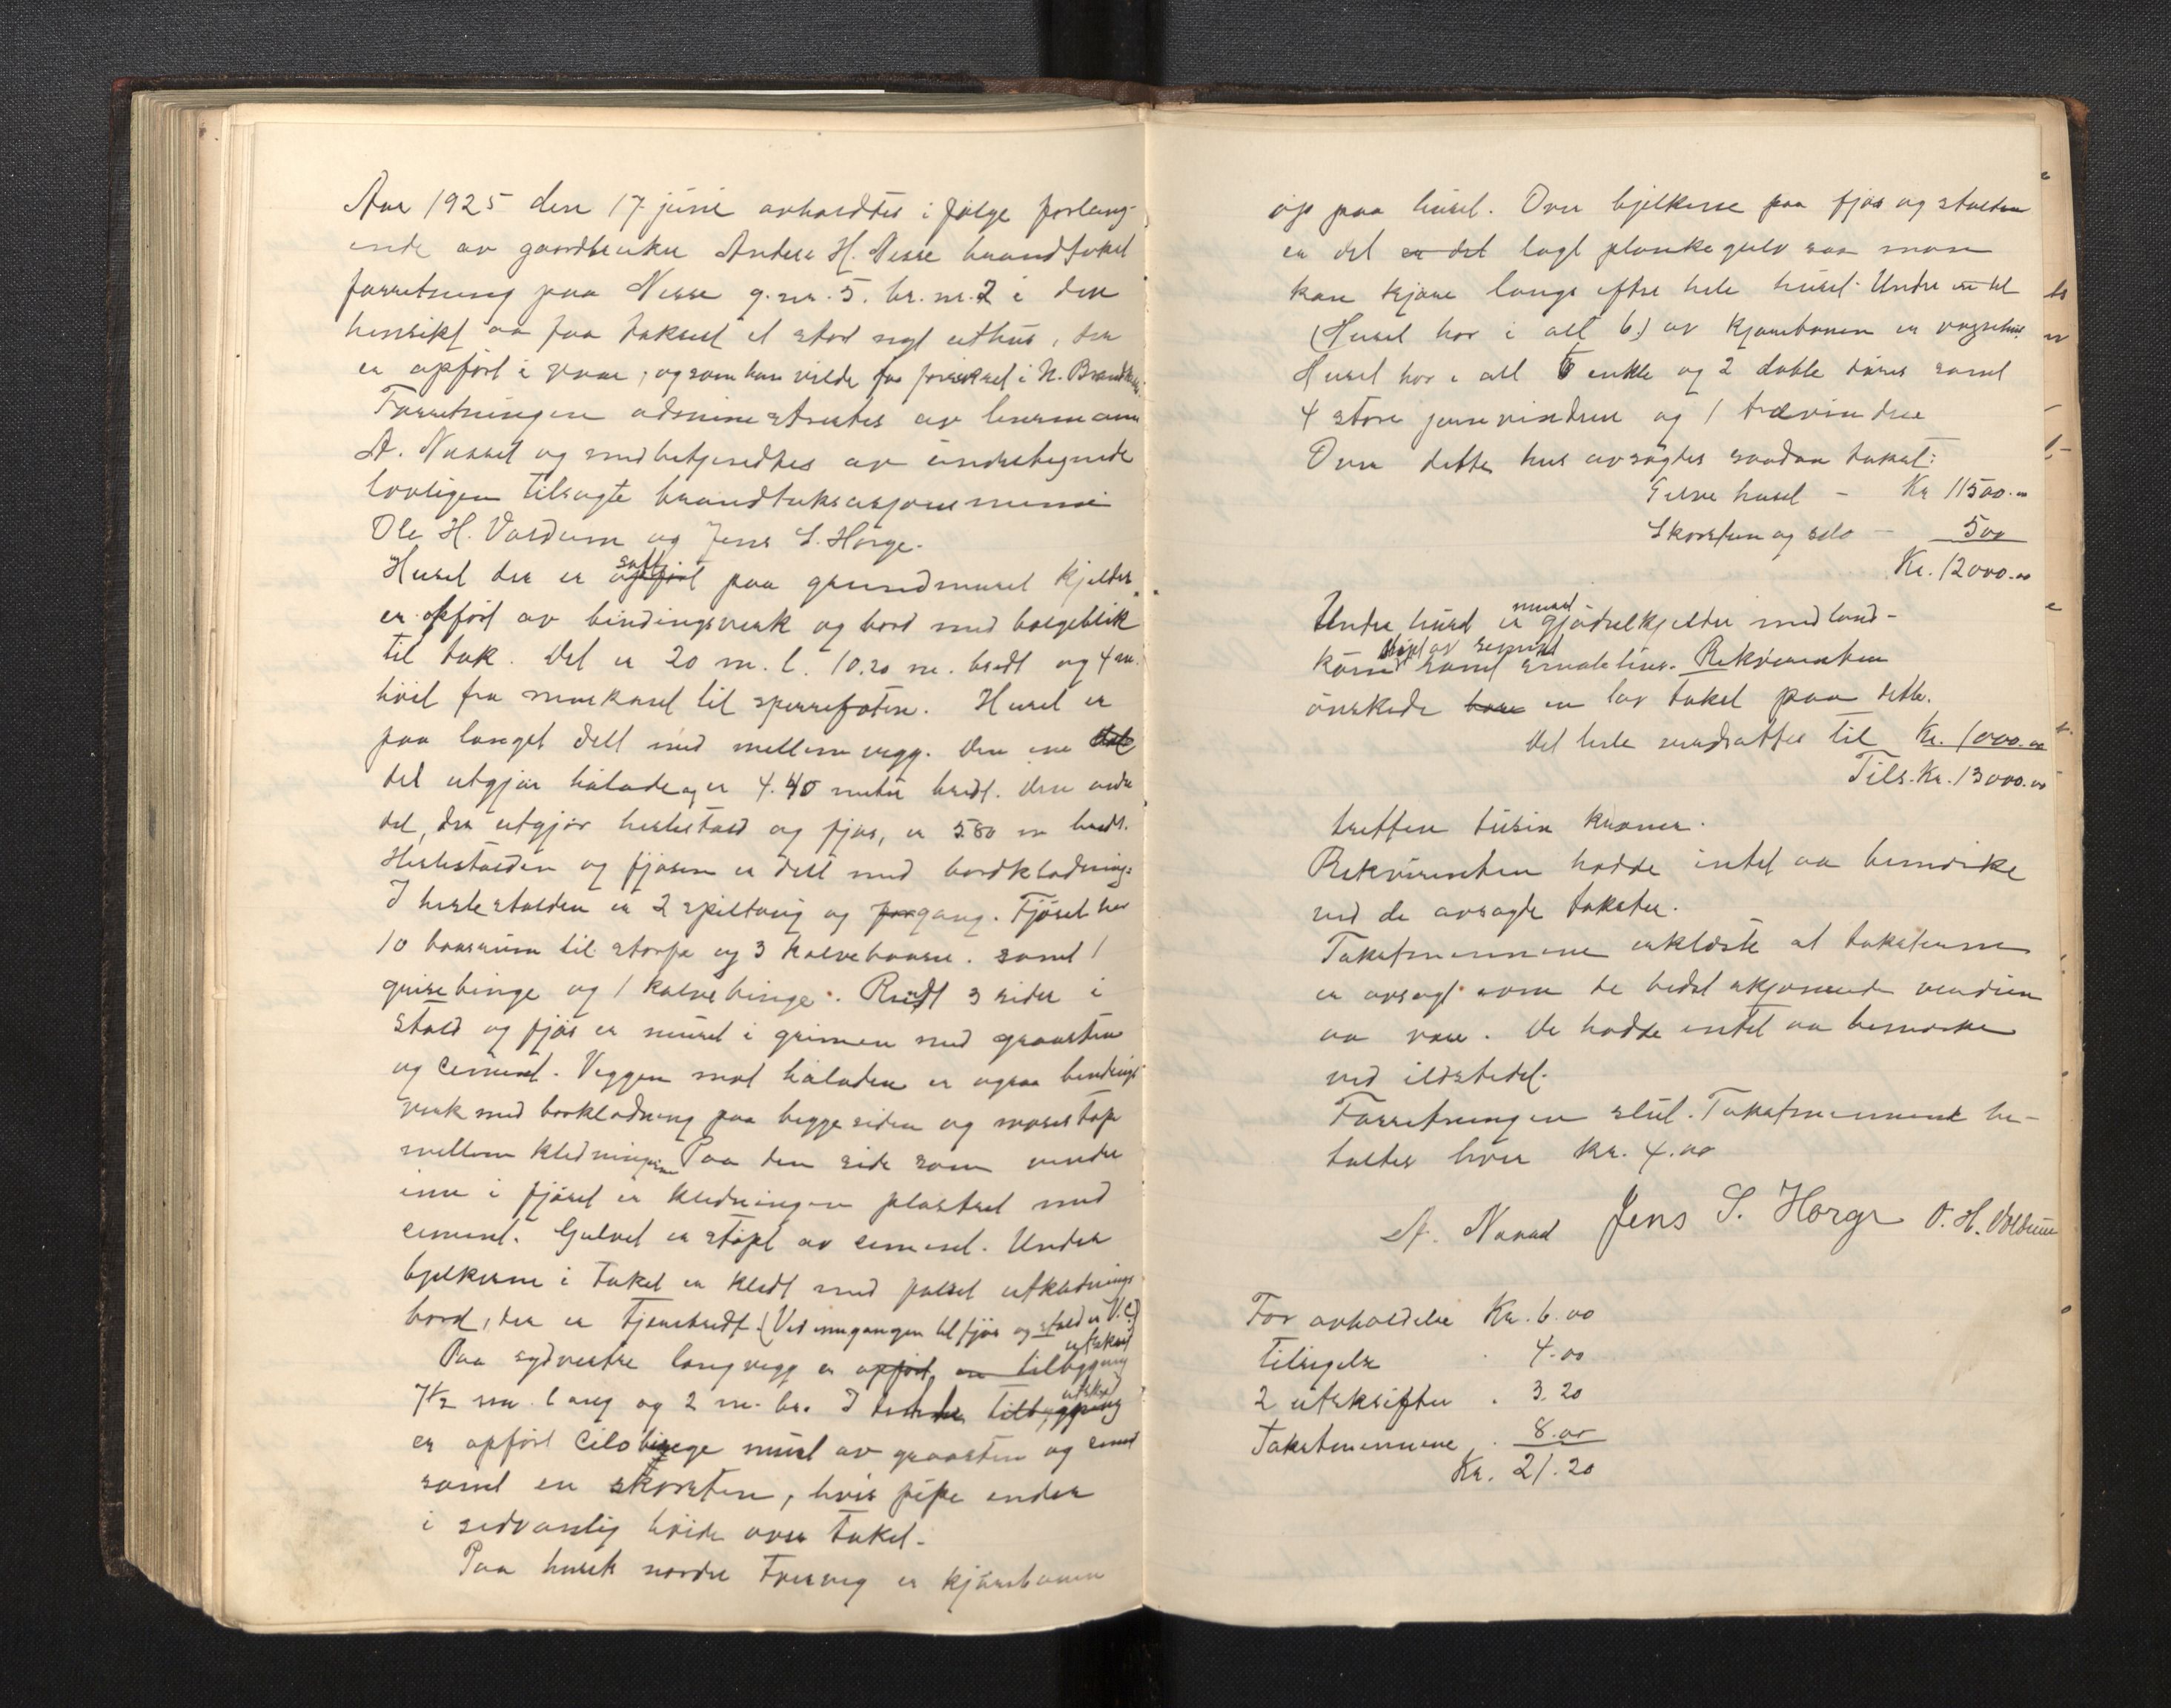 Aar 1925 den 17 juni avholdtes i følge forlang-
ende av gaardbruker Anders H. Nesse brandtakst
forretning paa Nesse g.nr. 5. br.nr. 2 i den
hensikt aa faa takseret et stort nyt uthus, der
er opført i vaar, og som han vilde faa forsikret i N. Brandkasse.
Forretningen administrertes av lensmann
A. Naasad og medbetjentes av undertegnede
lovligen tilsagte brandtaksasjonsmenn
Ole H. Voldum og Jens S. Horge.
Huset der er satt opført paa grundmuret kjelder
er opført av bindingsverk og bord med bølgeblik
til tak. Det er 20 m. l. 10.20 m. bredt og 4 m.
høit fra murkanst til sperrefoten. Huset er
paa langs delt med mellem vegg. Den ene
del utgjør hølade og er 4.40 meter bredt. den andre
del, der utgjør hestestald og fjøs, er 580 m bredt.
Hestestalden og fjøsen er delt med bordkledning.
I hestestalden er 2 spiltaug og forgang. Fjøset har
10 baasrum til storfe og 3 kalvebaaser. samt 1
grisebinge og 1 kalvebinge. Rundt 3 sider i
stald og fjøs er muret i grinnen med graasten
og cement. Veggen mot høladen er ogsaa bindings
verk med bordkledning paa begge sider og mosestop
mellem kledningene Paa den side som vender
inn i fjøset er kledningen plastret med
cement. Gulvet er støpt av cement. Under
bjelkerne i taket er kledt med pølset utklednings
bord, der er tjærebredt. (Ved inngangen til fjøs og stald er V.C.)
Paa sydvestre langvegg er opført en tilbygning utskut
7½ m. lang og 2 m. br. I denne tilbygning utskut
er opført cilobinge muret av graasten og cement
samt en skorsten, hvis pipe ender
i sedvanlig høide over taket.
Paa husets nordre tvervæg er kjørebanen
op paa huset. Over bjelkerne paa fjøs og stalden
er det er det lagt plankegulv saa man
kan kjøre langs efter hele huset. Under en del
(Huset har i alt 6.) av kjørebanen er vognhus.
Huset har i alt 6 enkle og 2 doble dører samt
4 store jernvinduer og 1 trævindu
Over dette hus avsagdes saadan takst:
Selve huset - Kr 11500.00
Skorsten og silo - 500
Kr. 12000.00
Under huset er muret gjødselkjelder med land-
kum støpt av sement samt smaalehus. Rekvirenten
ønskede bare en lav takst paa dette.
Det hele verdsattes til Kr. 1000.00
Tils. Kr. 13000.00
tretten tusin kroner.
Rekvirenten hadde intet aa bemerke
ved de avsagte takster.
Takstmennene erklærte at taksterne
er avsagt som de bedst skjønnende verdien
aa være. De hadde intet aa bemerke
ved ildstedet.
Forretningen slut. Takstmennene be-
taltes hver kr. 4.00
A. Naasad Jens S. Horge O. H. Voldum
For avholdelse Kr. 6.00
tilsigelse . 4.00
2 utskrifter . 3.20
Takstmennene . 8.00
Kr. 21.20